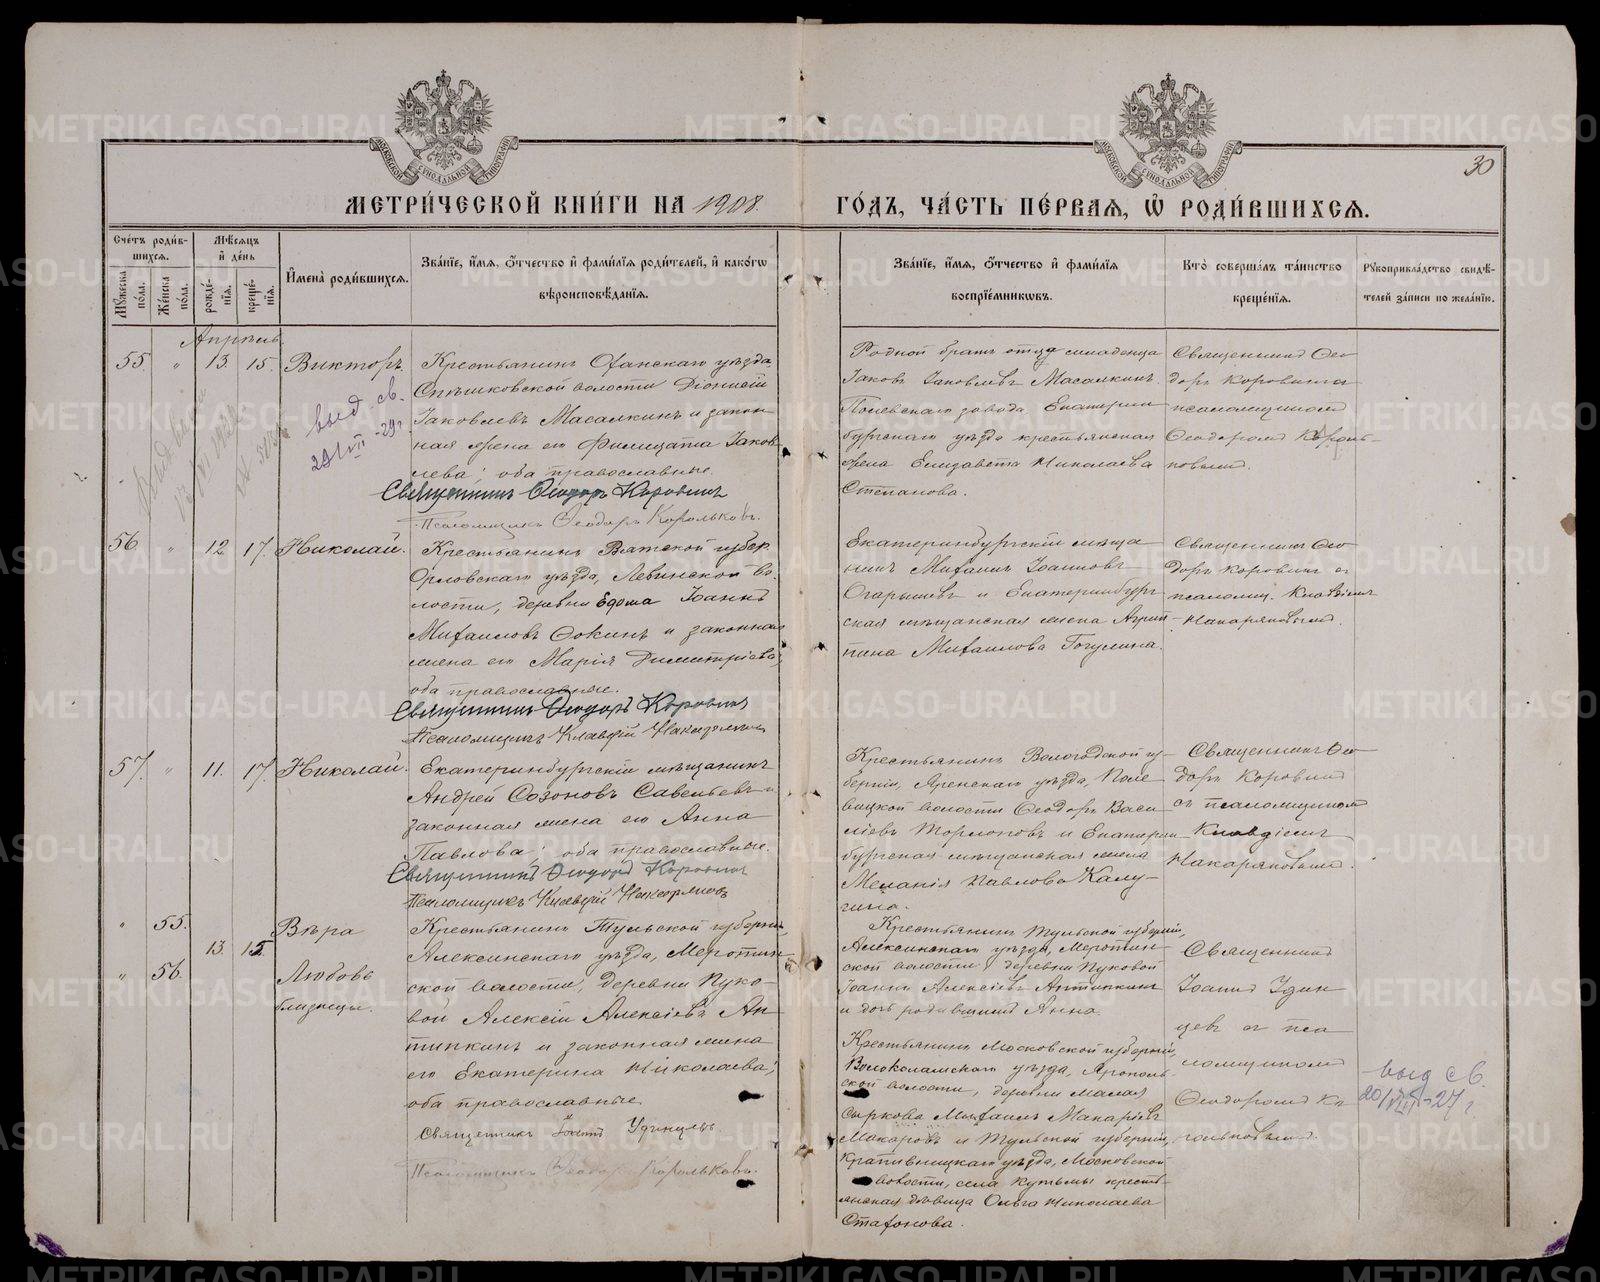 30
МЕТРИ́ЧЕСКОЙ КНИ́ГИ НА 1908.
ГО́ДЪ, ЧА́СТЬ ПЕ́РВАЯ, Ѡ РОДИ́ВШИХСЯ.
Сче́тъ роди́в-
шихся.
Мꙋ́жеска по́ла.
Же́нска по́ла.
Мѣ́сяцъ и де́нь
рожде́-
нїя.
креще́-
нїя.
Имена̀ роди́вшихся.
Зва́нїе, и́мя, ѻ҆́тчество и҆ фами́лїя роди́телей, и҆ како́гѡ
вѣроисповѣ́данїя.
Зва́нїе, и́мя, ѻ҆́тчество и҆ фами́лїя
воспрїе́мникѡвъ.
Кто̀ соверша́лъ та́инство
креще́нїя.
Рꙋкоприкла́дство свидѣ́-
телей за́писи по жела́нїю.
Апрѣль
55. " 13. 15. Викторъ.
выд. св.
29/VII-29 г.
Крестьянинъ Оханскаго уѣзда
волости Діонисій
Іаковлевъ Масалкинъ и закон-
ная жена его Фелицата Іаков-
лева; оба православные.
Священникъ Ѳеодоръ Коровинъ
Псаломщикъ Ѳеодоръ Корольковъ.
Родной братъ отца младенца
Іаковъ Іаковлевъ Масалкинъ
Полевскаго завода, Екатерин
бургскаго уѣзда крестьянская
жена Елизавета Николаева
Степанова.
Священникъ Ѳео
доръ Коровинъ
псаломщикомъ
Ѳеодоромъ Король-
ковымъ.
56. " 12 17. Николай.
Крестьянинъ Вятской губер.
Орловскаго уѣзда, Левинской во-
лости, деревни Іоаннъ
Михаиловъ Ѳокинъ и законная
жена его Марія Димитріева,
оба православные.
Священникъ Ѳеодоръ Коровинъ
Псаломщикъ Клавдій Накаряковъ
Екатеринбургскій мѣща
нинъ Михаилъ Іоанновъ
Огарышевъ и Екатеринбург
ская мѣщанская жена Агрип-
пина Михаилова Гогулина.
Священникъ Ѳео
доръ Коровинъ съ
псаломщ. Клавдіемъ
Накаряковымъ.
57. " 11. 17. Николай.
Екатеринбургскій мѣщанинъ
Андрей Созоновъ Савельевъ и
законная жена его Анна
Павлова; оба православные.
Священникъ Ѳеодоръ Коровинъ
Псаломщикъ Клавдій Накаряковъ
Крестьянинъ Вологодской гу-
берніи, Яренскаго уѣзда,
волости Ѳеодоръ Васи
ліевъ и Екатерин
бургская мѣщанская жена
Меланія Павлова Калу-
гина.
Священникъ Ѳео
доръ Коровинъ
съ псаломщикомъ
Клавдіемъ
Накаряковымъ.
" 55. Вѣра
13. 15.
" 56. Любовь
близнецы.
Крестьянинъ Тульской губерніи,
Алексинскаго уѣзда,
ской волости, деревни Пуко-
вой Алексій Алексіевъ Ан
типкинъ и законная жена
его Екатерина Николаева;
оба православные
Священникъ Іоаннъ Удинцевъ.
Псаломщикъ Ѳеодоръ Корольковъ.
Крестьянинъ Тульской губерніи,
Алексинскаго уѣзда,
ской волости, деревни Пуковой
Іоаннъ Алексіевъ Антипкинъ
и дочь родившихъ Анна.
Крестьянинъ Московской губерніи,
Волоколамскаго уѣзда, Ярополь-
ской волости, деревни Малая
Сыркова Михаилъ Макаріевъ
Макаровъ и Тульской губерніи,
Крапивницкаго уѣзда, Московской
волости, села крестъ-
янская дѣвица Ольга Николаева
Священникъ
Іоаннъ Удин
цевъ съ пса
ломщикомъ
Ѳеодоромъ Ко
рольковымъ.
выд св.
20/VIII-27 г.
METRIKI.GASO-URAL.RU